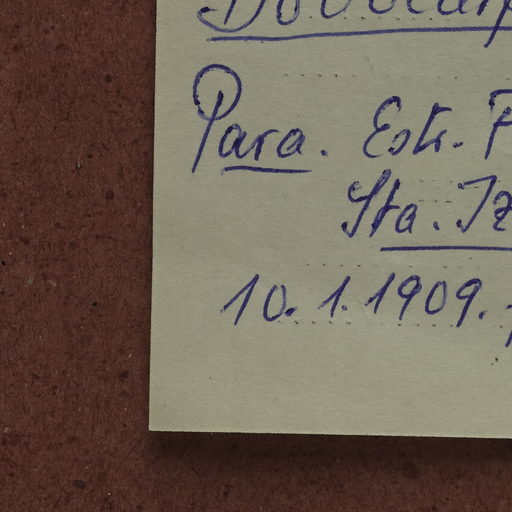 Para. Estr. F
Sta. Iz
10. 1. 1909.